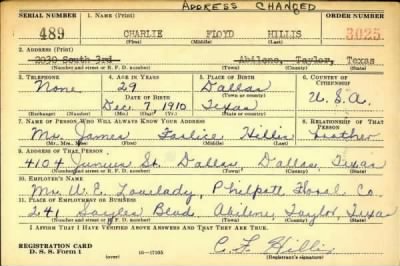 ADDRESS CHANGED
SERIAL NUMBER 1. NAME (Print) ORDER NUMBER
489 CHARLIE FLOYD HILLIS 3025.
(First) (Middle) (Last)
2. ADDRESS (Print)
2030 South 3rd Abilene, Taylor, Texas
(Number and street or R. F. D. number) (Town) (County) (State)
3. TELEPHONE 4. AGE IN YEARS 5. PLACE OF BIRTH 6. COUNTRY OF CITIZENSHIP
None 29 Dallas
DATE OF BIRTH (Town or county)
Dec. 7, 1910 Texas U.S.A.
(Exchange) (Number) (Mo.) (Day) (Yr.) (State or country)
7. NAME OF PERSON WHO WILL ALWAYS KNOW YOUR ADDRESS 8. RELATIONSHIP OF THAT PERSON
Mr. James Hillis
(Mr., Mrs., Miss) (First) (Middle) (Last)
9. ADDRESS OF THAT PERSON
4104 Junius St. Dallas, Dallas, Texas
(Number and street or R. F. D. number) (Town) (County) (State)
10. EMPLOYER'S NAME
Mr. W. E. Lovelady, Philpott Floral Co.
11. PLACE OF EMPLOYMENT OR BUSINESS
241 Sayles Blvd Abilene, Taylor, Texas
(Number and street or R. F. D. number) (Town) (County) (State)
I AFFIRM THAT I HAVE VERIFIED ABOVE ANSWERS AND THAT THEY ARE TRUE.
REGISTRATION CARD
D. S. S. FORM 1 16-17105 C. F. Hillis
(over) (Registrant's signature)